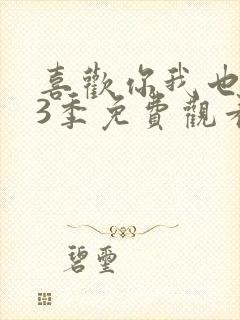 喜歡你我也
3季免費觀看
碧璽